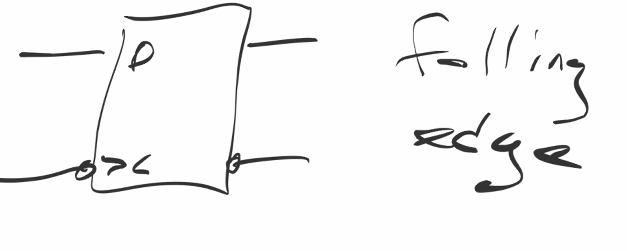 D
>C
falling
edge